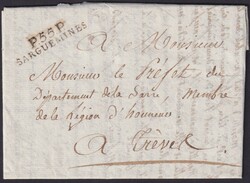 P55P
SARGUEMINES
A Monsieur
Monsieur le Préfet du
Département de la Sarre, Membre
de la Légion d'honneur
a Trèves